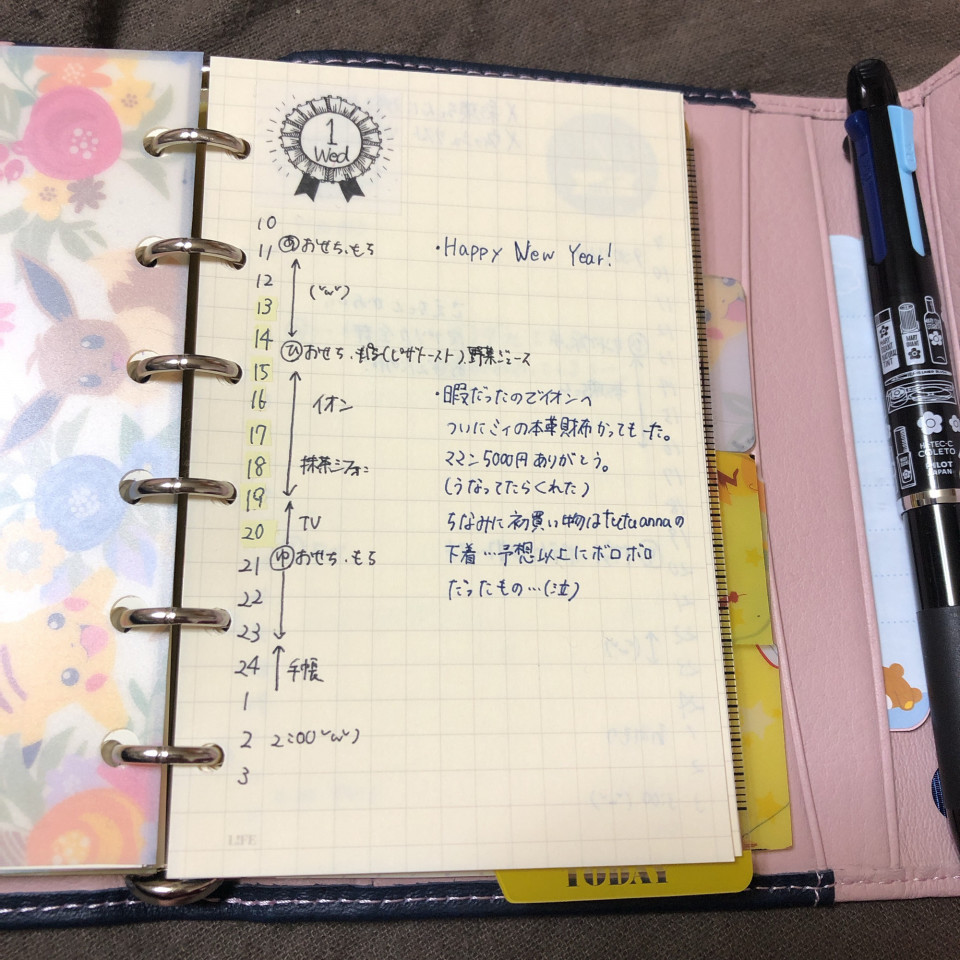 1
Wed
10
11 あ おせち、もち
12
(˘ω˘)
13
14
ひ おせち、もち(ピザトースト)、野菜ジュース
15
16 イオン
17
18 抹茶シフォン
19
20 TV
21 ゆ おせち、もち
22
23
24 手帳
1
2 2:00(˘ω˘)
3
・Happy New Year!
・暇だったのでイオンへ
ついにミィの本革財布かってもーた。
ママン5000円ありがとう。
(うなってたらくれた)
ちなみに初買い物はtutuannaの
下着…予想以上にボロボロ
だったもの…(泣)
LIFE
TODAY
HI-TEC-C
COLETO
PILOT
JAPAN